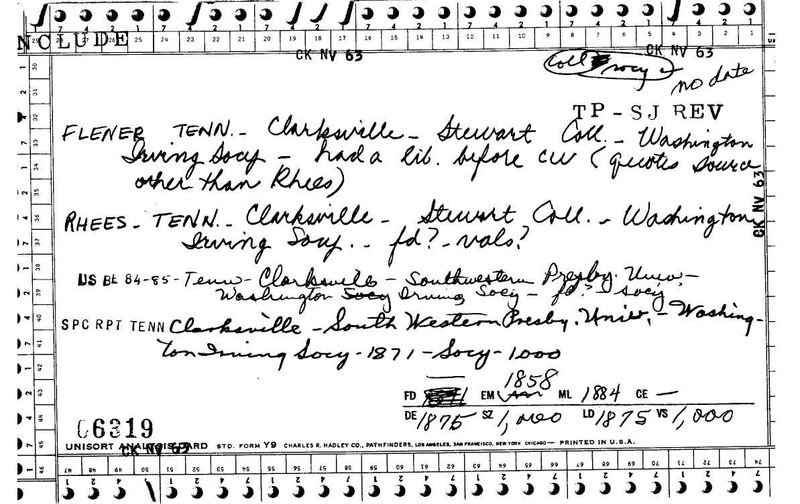 INCLUDE
CK NV 63
CK NV 63
Coll Socy
no date
TP-SJ REV
FLENER TENN.- Clarksville- Stewart Coll.- Washington
Irving Socy - had a lib. before CW (quotes source
other than Rhees)
RHEES- TENN.- Clarksville- Stewart Coll.- Washington
Irving Socy.. fd? - vols?
CK NV 63
US BE 84-85- Tenn- Clarksville- Southwestern Presby. Univ.-
Washington Socy Irving Socy- fd?- socy
SPC RPT TENN Clarksville-South Western Presby. Univ.- Washing-
ton Irving Socy-1871-Socy-1000
FD 1871 EM 1858 ML 1884 CE —
DE 1875 SZ 1,000 LD 1875 VS 1,000
06319
CK NV 63
UNISORT ANALYSIS CARD STD. FORM Y9 CHARLES R. HADLEY CO., PATHFINDERS, LOS ANGELES, SAN FRANCISCO, NEW YORK CHICAGO— PRINTED IN U.S.A.